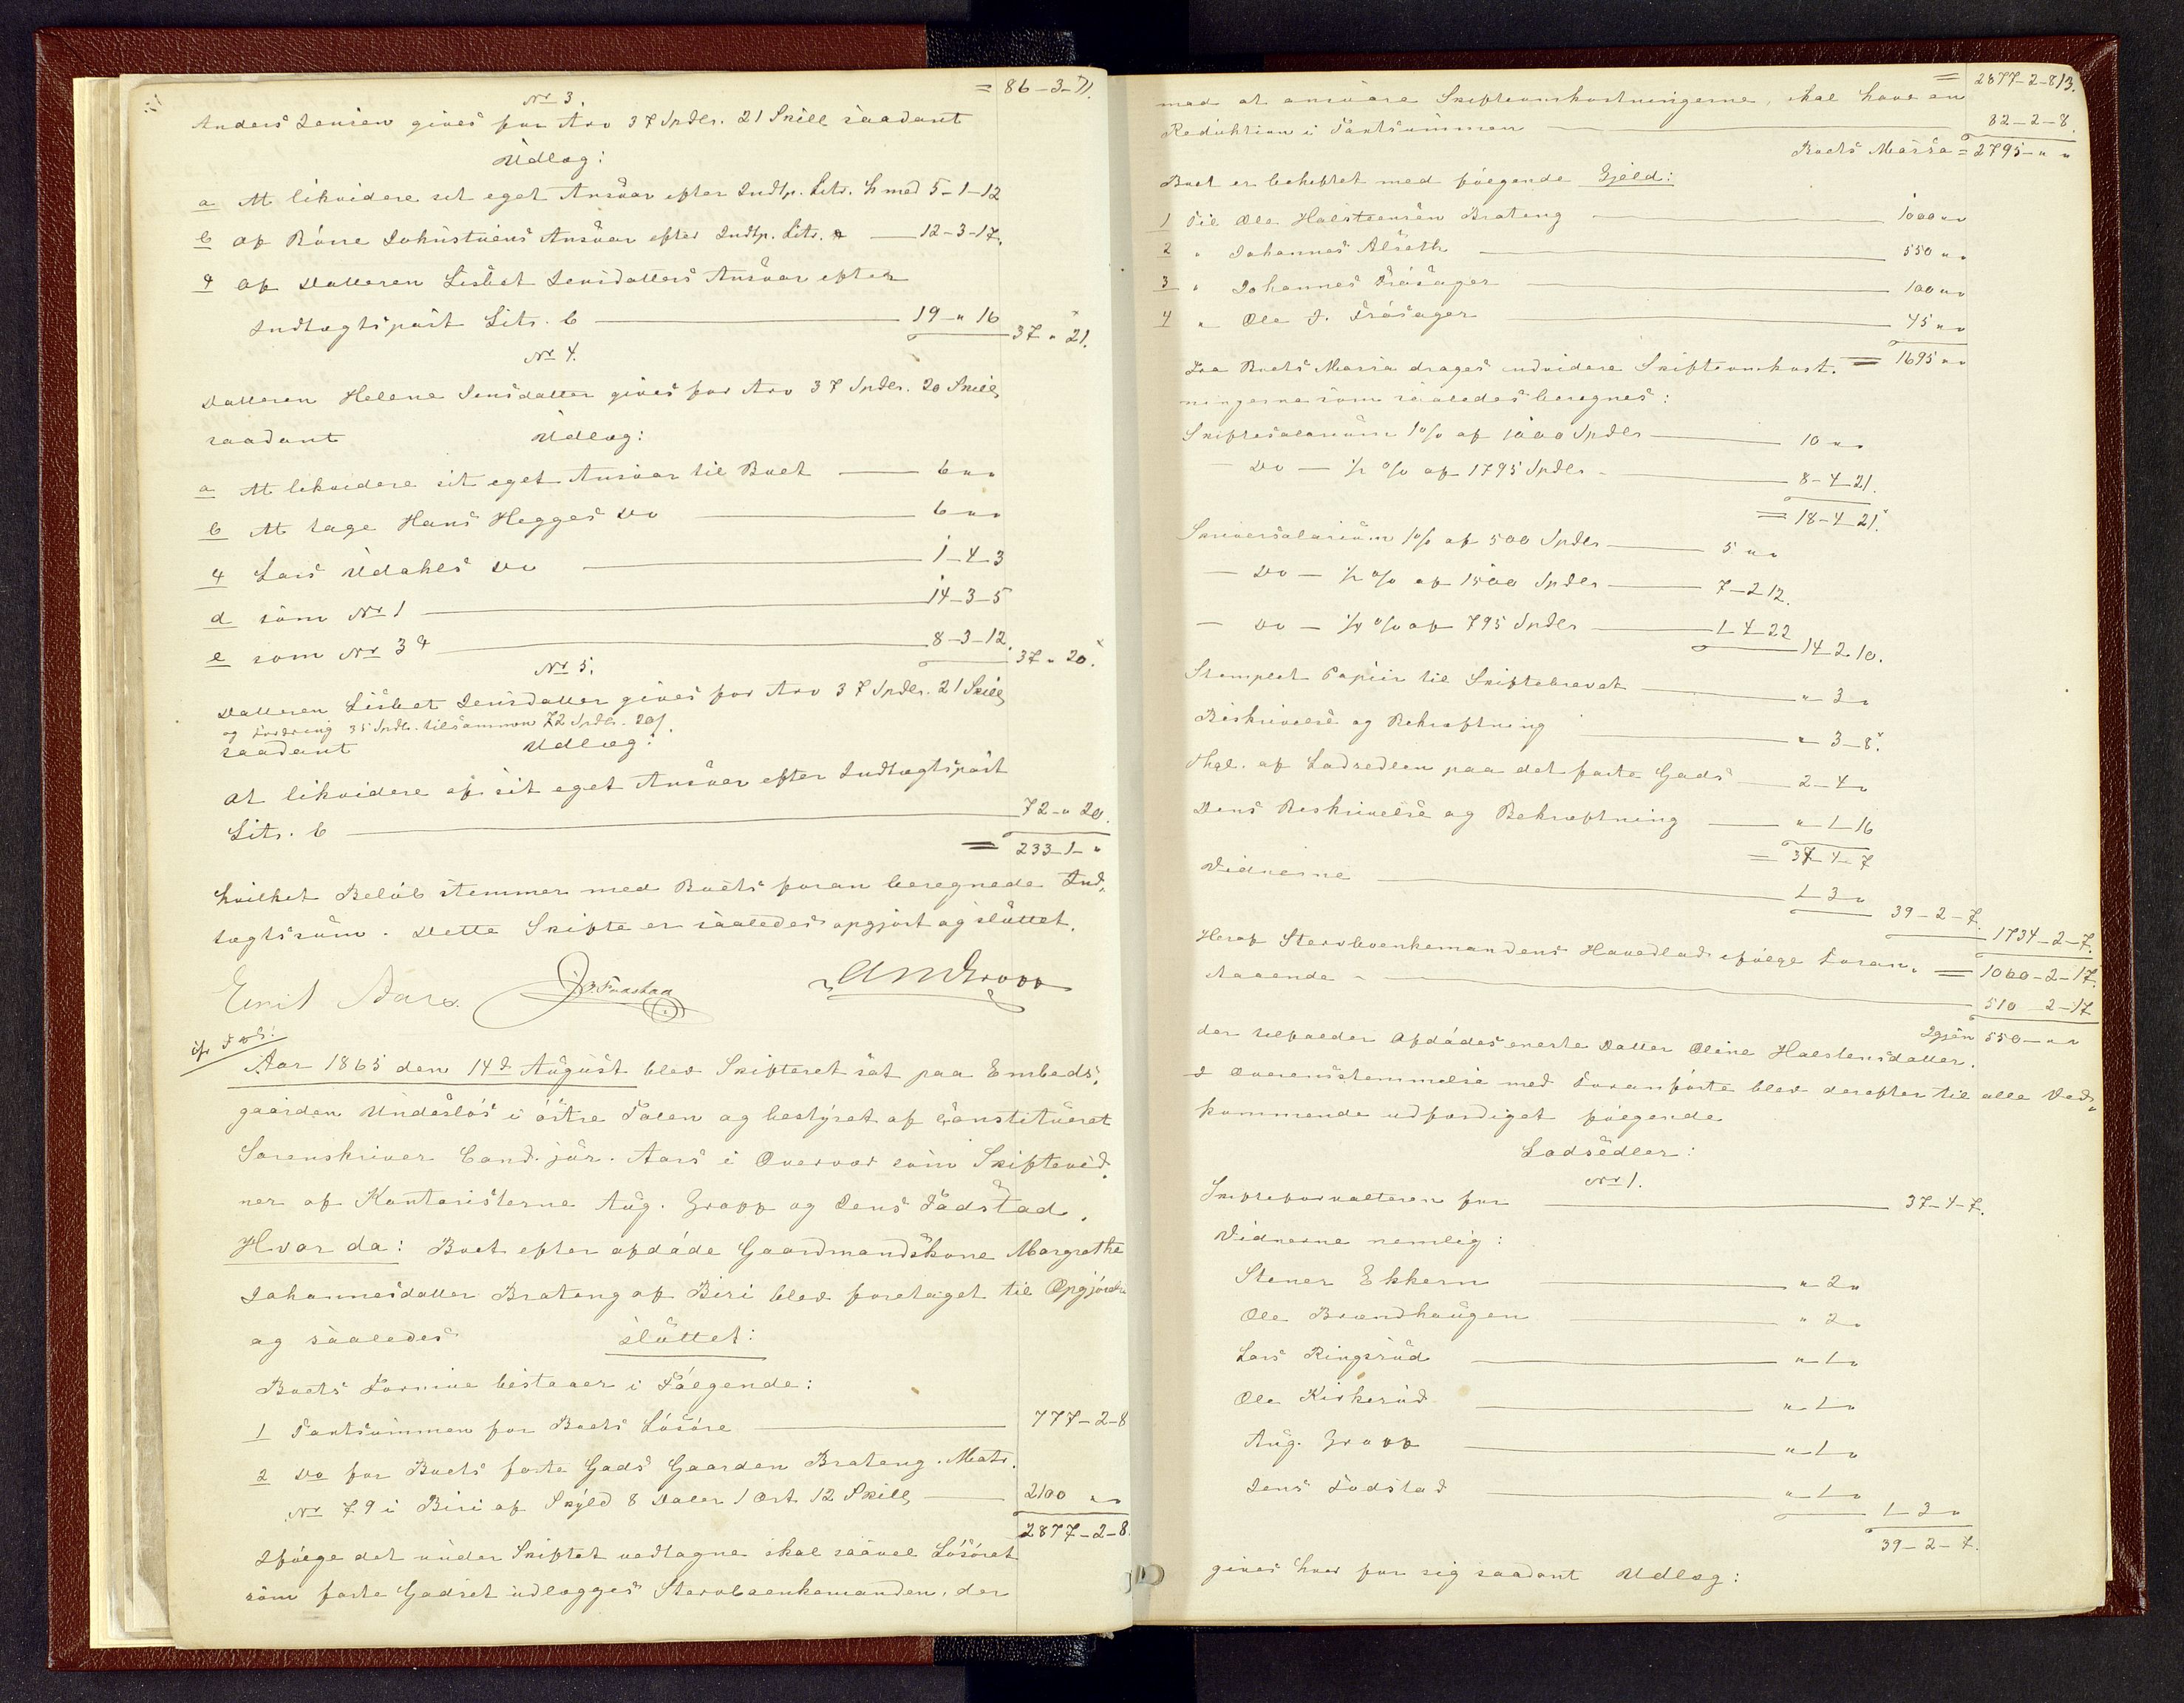 = 86-3-11.
No 3.
Anders Jensen gives for Arv 37 Spdlr. 21 Skill saadant
Udlæg:
a At likvidere sit eget Ansvar efter Indtp. Litr. h med 5-1-12
b af Rønne Ansvar efter Indtp. Litr. a — 12-3-17.
c af Datteren Lisbet Jensdatters Ansvar efter
Indtægtspost Litr. b — 19 " 16 37 " 21.
No 4.
Datteren Helene Jensdatter gives for Arv 37 Spdlr. 20 Skill
saadant Udlæg:
a At likvidere sit eget Ansvar til Boet — 6 " "
b At tage Hans Hegges Do — 6 " "
c Lars Udahls Do — 1-4-3
d som No 1 — 14-3-5
e som No 3 c — 8-3-12. 37 " 20.
No 5.
Datteren Lisbet Jensdatter gives for Arv 37 Spdlr. 21 Skill
og Fordring 35 Spdlr. tilsammen 72 Spdlr. 20 s
saadant Udlæg:
At likvidere af sit eget Ansvar efter Indtægtspost
Litr. b — 72 - " 20.
= 233-1- "
hvilket Beløb stemmer med Boets foran beregnede Ind-
tægtssum. Dette Skifte er saaledes opgjort og sluttet.
Emil Aars. J. Fodstad A M Gropp
Aar 1865 den 14d August blev Skifteret sat paa Embeds-
gaarden Undeslös i östre Toten og bestyret af constitueret
Sorenskriver Cand. jur. Aars i Overvær som Skiftevid-
ner af Kontoristerne Aug. Gropp og Jens Fodstad.
Hvor da: Boet efter afdøde Gaardmandskone Margrethe
Johannesdatter Brateng af Biri blev foretaget til Opgjørelse
og saaledes sluttet:
Boets Formue bestaaer i Følgende:
1 Taxtsummen for Boets Løsøre — 777-2-8
2 Do for Boets faste Gods Gaarden Brateng. Matr.
No 79 i Biri af Skyld 8 Daler 1 Ort 12 Skill — 2100 " "
2877-2-8.
Ifølge det under Skiftet vedtagne skal saavel Løsøret
som faste Godset udlægges Stervboenkemanden, der
= 2877-2-8/3.
mod at ansvare Skifteomkostningerne, skal have en
Reduktion i Taxtsummen — 82-2-8.
Boets Massa = 2795- " "
Boet er beheftet med følgende Gjeld:
1 Til Ole Halsteensen Brateng — 1000 " "
2 " Johannes Alseth — 550 " "
3 " Johannes Frøsager — 100 " "
4 " Ole J. Frøsager — 45 " "
= 1695 " "
Fra Boets Massa drages endvidere Skifteomkost-
ningerne som saaledes beregnes:
Skiftesalarium 1% af 1000 Spdlr — 10 " "
— Do — ½ % af 1795 Spdlr — 8-4-21.
= 18-4-21.
Skriversalarium 1% af 500 Spdlr — 5 " "
— Do — ½ % af 1500 Spdlr — 7-2 12.
— Do — ¼ % af 795 Spdlr — 1-4-22 14-2 10.
Stemplet Papiir til Skiftebrevet — " 3 "
Beskrivelse og Bekræftning — " 3-8.
Thgl. af Lodsedlen paa det faste Gods — 2-4 "
Dens Beskrivelse og Bekræftning — " 1-16
= 37-4-7
Vidnerne — 1-3 " 39-2-7. 1734-2-7.
= 1060-2-17.
Heraf Stervboenkemandens Hovedlod ifølge Foran-
staaende — 510-2-17
Igjen 550- " "
der tilfalder Afdødes eneste Datter Oline Halstensdatter.
I Overensstemmelse med Foranførte blev derefter til alle Ved-
kommende udfærdiget følgende
Lodsedler:
No 1.
Skifteforvalteren for — 37-4-7.
Vidnerne nemlig:
Stener Ekkern — " 2 "
Ole Brændhaugen — " 2 "
Lars Ringsrud — " 1 "
Ole Kirkerud — " 1 "
Aug. Gropp — " 1 "
Jens Fodstad — " 1 "
1-3 "
39-2-7.
gives hver for sig saadant Udlæg: